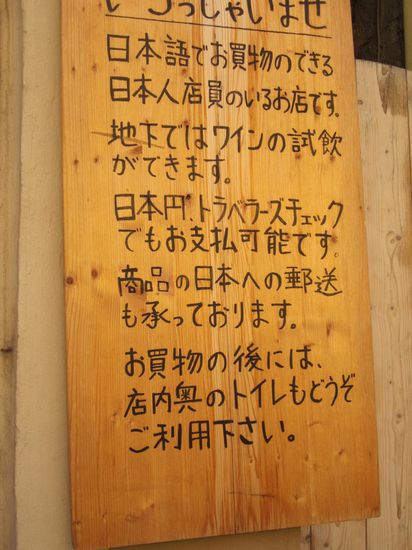 いらっしゃいませ
日本語でお買物のできる
日本人店員のいるお店です。
地下ではワインの試飲
ができます。
日本円、トラベラーズチェック
でもお支払可能です。
商品の日本への郵送
も承っております。
お買物の後には、
店内奥のトイレもどうぞ
ご利用下さい。